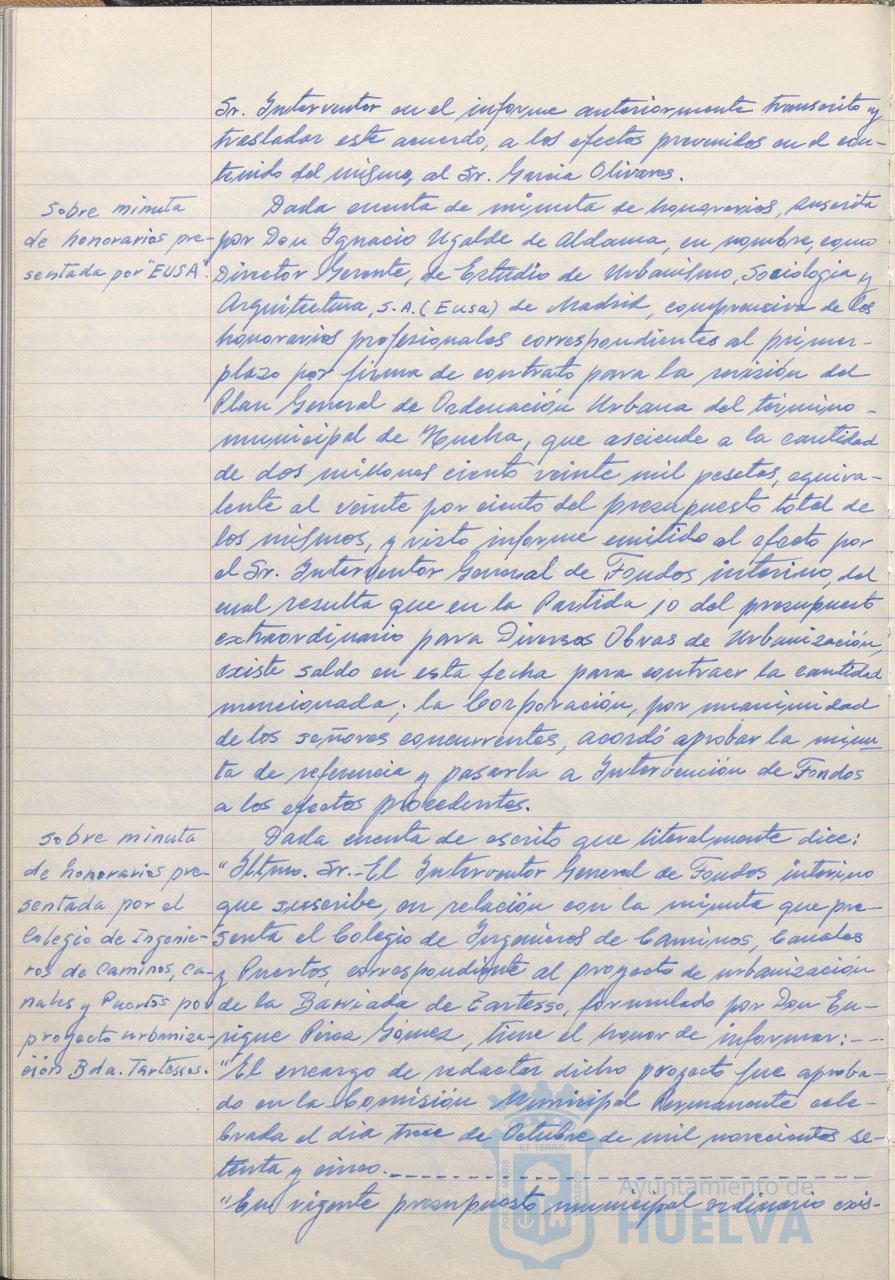 Sr. Interventor en el informe anteriormente transcrito y
trasladar este acuerdo, a los efectos prevenidos en el con-
tenido del mismo, al Sr. García Olivares.
Sobre minuta
de honorarios pre-
sentada por "EUSA".
Dada cuenta de minuta de honorarios, suscrita
por Don Ignacio Ugalde de Aldama, en nombre, como
Director Gerente, de Estudio de Urbanismo, Sociología y
Arquitectura, S.A. (Eusa) de Madrid, comprensiva de los
honorarios profesionales correspondientes al primer
plazo por firma de contrato para la revisión del
Plan General de Ordenación Urbana del término
municipal de Huelva, que asciende a la cantidad
de dos millones ciento veinte mil pesetas, equiva-
lente al veinte por ciento del presupuesto total de
los mismos, y visto informe emitido al efecto por
el Sr. Interventor General de Fondos interino, del
cual resulta que en la Partida 10 del presupuesto
extraordinario para Diversas Obras de Urbanización,
existe saldo en esta fecha para contraer la cantidad
mencionada; la Corporación, por unanimidad
de los señores concurrentes, acordó aprobar la minu
ta de referencia y pasarla a Intervención de Fondos
a los efectos procedentes.
Sobre minuta
de honorarios pre-
sentada por el
Colegio de Ingenie-
ros de Caminos, Ca-
nales y Puertos po
proyecto urbaniza-
ción Bda. Tartessos.
Dada cuenta de escrito que literalmente dice:
"Iltmo. Sr.- El Interventor General de Fondos interino
que suscribe, en relación con la minuta que pre-
senta el Colegio de Ingenieros de Caminos, Canales
y Puertos, correspondiente al proyecto de urbanización
de la Barriada de Tartesso, formulado por Don En-
rique Pérez Gómez, tiene el honor de informar:-
"El encargo de redactar dicho proyecto fue aproba-
do en la Comisión Municipal Permanente cele-
brada el día trece de Octubre de mil novecientos se-
tenta y cinco.
"En vigente presupuesto municipal ordinario exis-
ET TERRA
PORTUS MARIS
CUSTODIO
Ayuntamiento de
HUELVA